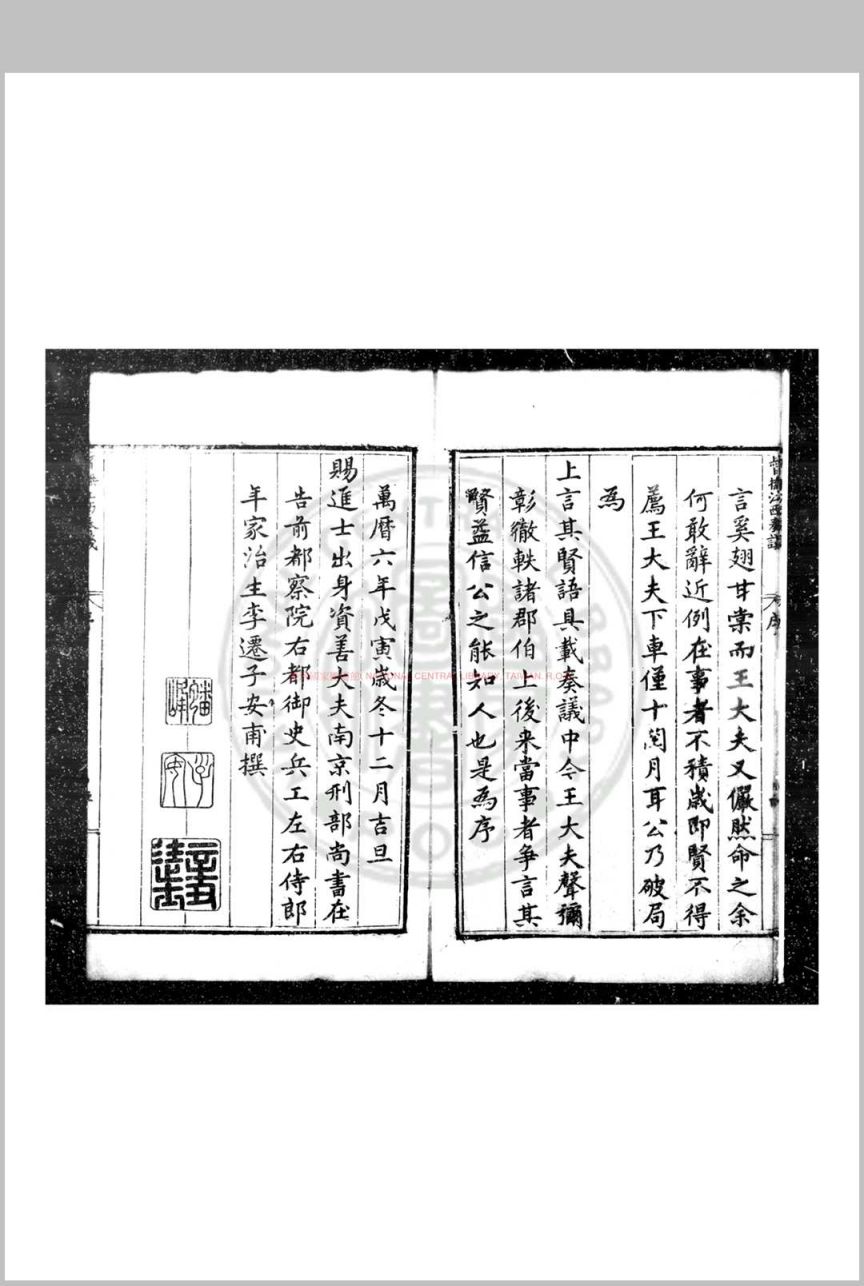 言奚翅甘棠而王大夫又儼然命之余
何敢辭近例在事者不積歲即賢不得
薦王大夫下車僅十閱月耳公乃破局
為
上言其賢語具載奏議中令王大夫聲彌
彰徹軼諸郡伯上後來當事者爭言其
賢益信公之能知人也是為序
萬曆六年戊寅歲冬十二月吉旦
賜進士出身資善大夫南京刑部尚書在
告前都察院右都御史兵工左右侍郎
年家治生李遷子安甫撰
NATIONAL CENTRAL LIBRARY, TAIWAN, R.O.C